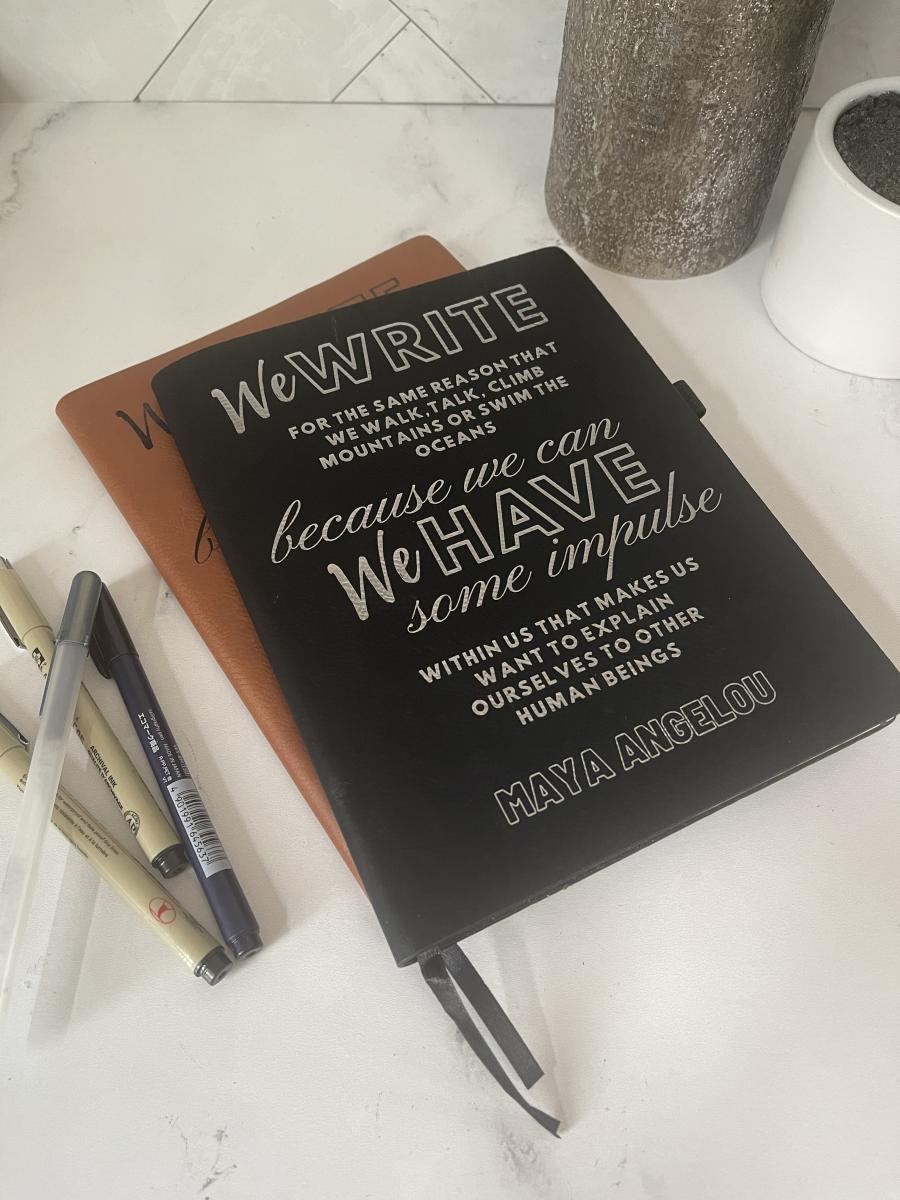 We WRITE
FOR THE SAME REASON THAT
WE WALK, TALK, CLIMB
MOUNTAINS OR SWIM THE
OCEANS
because we can
We HAVE
some impulse
WITHIN US THAT MAKES US
WANT TO EXPLAIN
OURSELVES TO OTHER
HUMAN BEINGS
MAYA ANGELOU
ARCHIVAL INK
MADE IN JAPAN
4 901991 645637